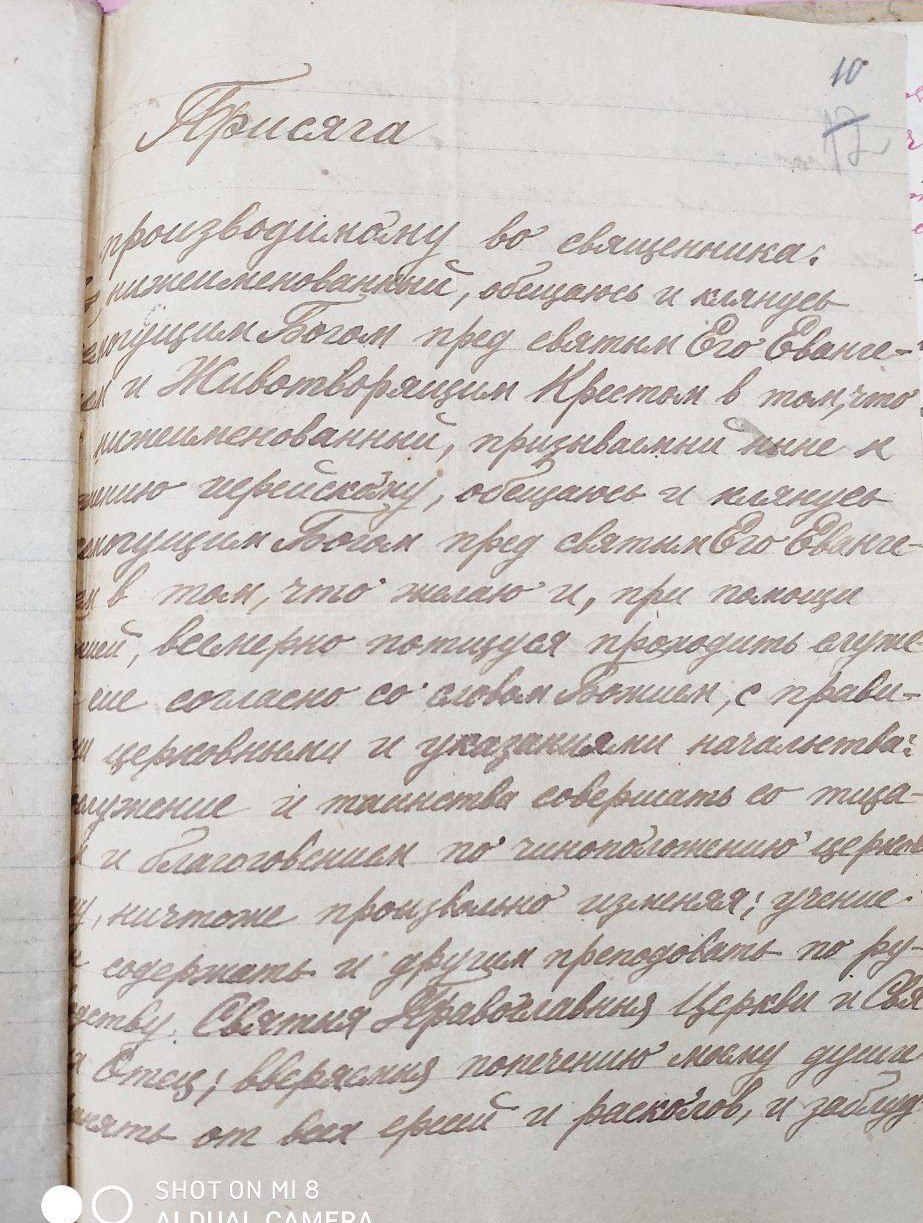 10
12
Присяга
производимому во священника:
нижеименованный, обещаюсь и клянусь
могущим Богом пред святым Его Еванге-
и Животворящим Крестом в том, что
нижеименованный, призываемый ныне к
иерейскому, обещаюсь и клянусь
могущим Богом пред святым Его Еванге-
в том, что желаю и, при помощи
всемерно потщуся проходить служе
сие согласно со словом Божием, с прави-
церковными и указаниями начальства:
служение и таинства совершать со тща-
и благоговением по чиноположению церков
ничтоже произвольно изменяя; учение
содержать и другим преподовать по ру-
Святыя Православныя Церкви и Свя
Отец; вверяемыя попечению моему души
от всех ересей и расколов, и заблуд
SHOT ON MI 8
AI DUAL CAMERA